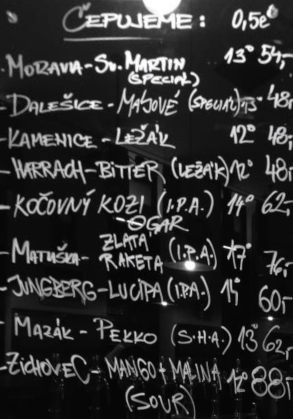 ČEPUJEME: 0,5ℓ
-MORAVIA-SV. MARTIN 13° 54,-
(SPECIAL)
-DALEŠICE-MÁJOVÉ (SPECIAL) 13° 48,-
-KAMENICE-LEŽÁK 12° 48,-
-HARRACH-BITTER (LEŽÁK) 12° 48,-
-KOČOVNÝ KOZI (I.P.A.) 14° 62,-
-OGAR
-MATUŠKA- ZLATÁ RAKETA (I.P.A.) 17° 76,-
-JUNGBERG-LUCIPA (IPA.) 14° 60,-
-MAZÁK-PEKKO (S.H.A.) 13° 62,-
-ZICHOVEC-MANGO+MALINA 12° 88,-
(SOUR)